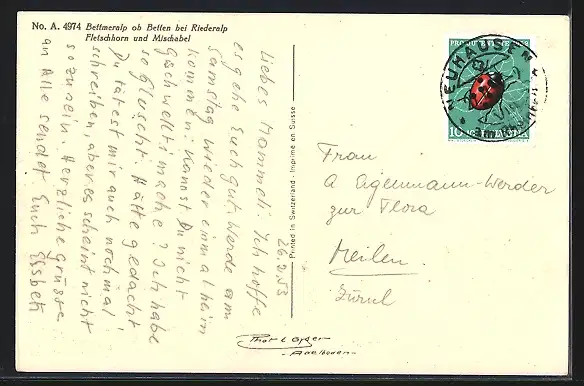 No. A. 4974 Bettmeralp ob Betten bei Riederalp
Fletschhorn und Mischabel
26.2.53
Liebes Mammeli! Ich hoffe
es gehe Euch gut. Werde am
Samstag wieder einmal heim
kommen. Kannst Du nicht
Gschwellti mache? Ich habe
so Gluscht. Hätte gedacht
Du tätest mir auch noch mal
schreiben, aber es scheint nicht
so zu sein. Herzliche Grüsse
an Alle sendet Euch Elsbeth
Printed in Switzerland - Imprimé en Suisse
PRO JUVENTUTE 1952
NEUHAUSEN
10 HELVETIA
Frau
A Egenmann-Werder
zur Flora
Meilen
Zürich
Phot
Adelboden